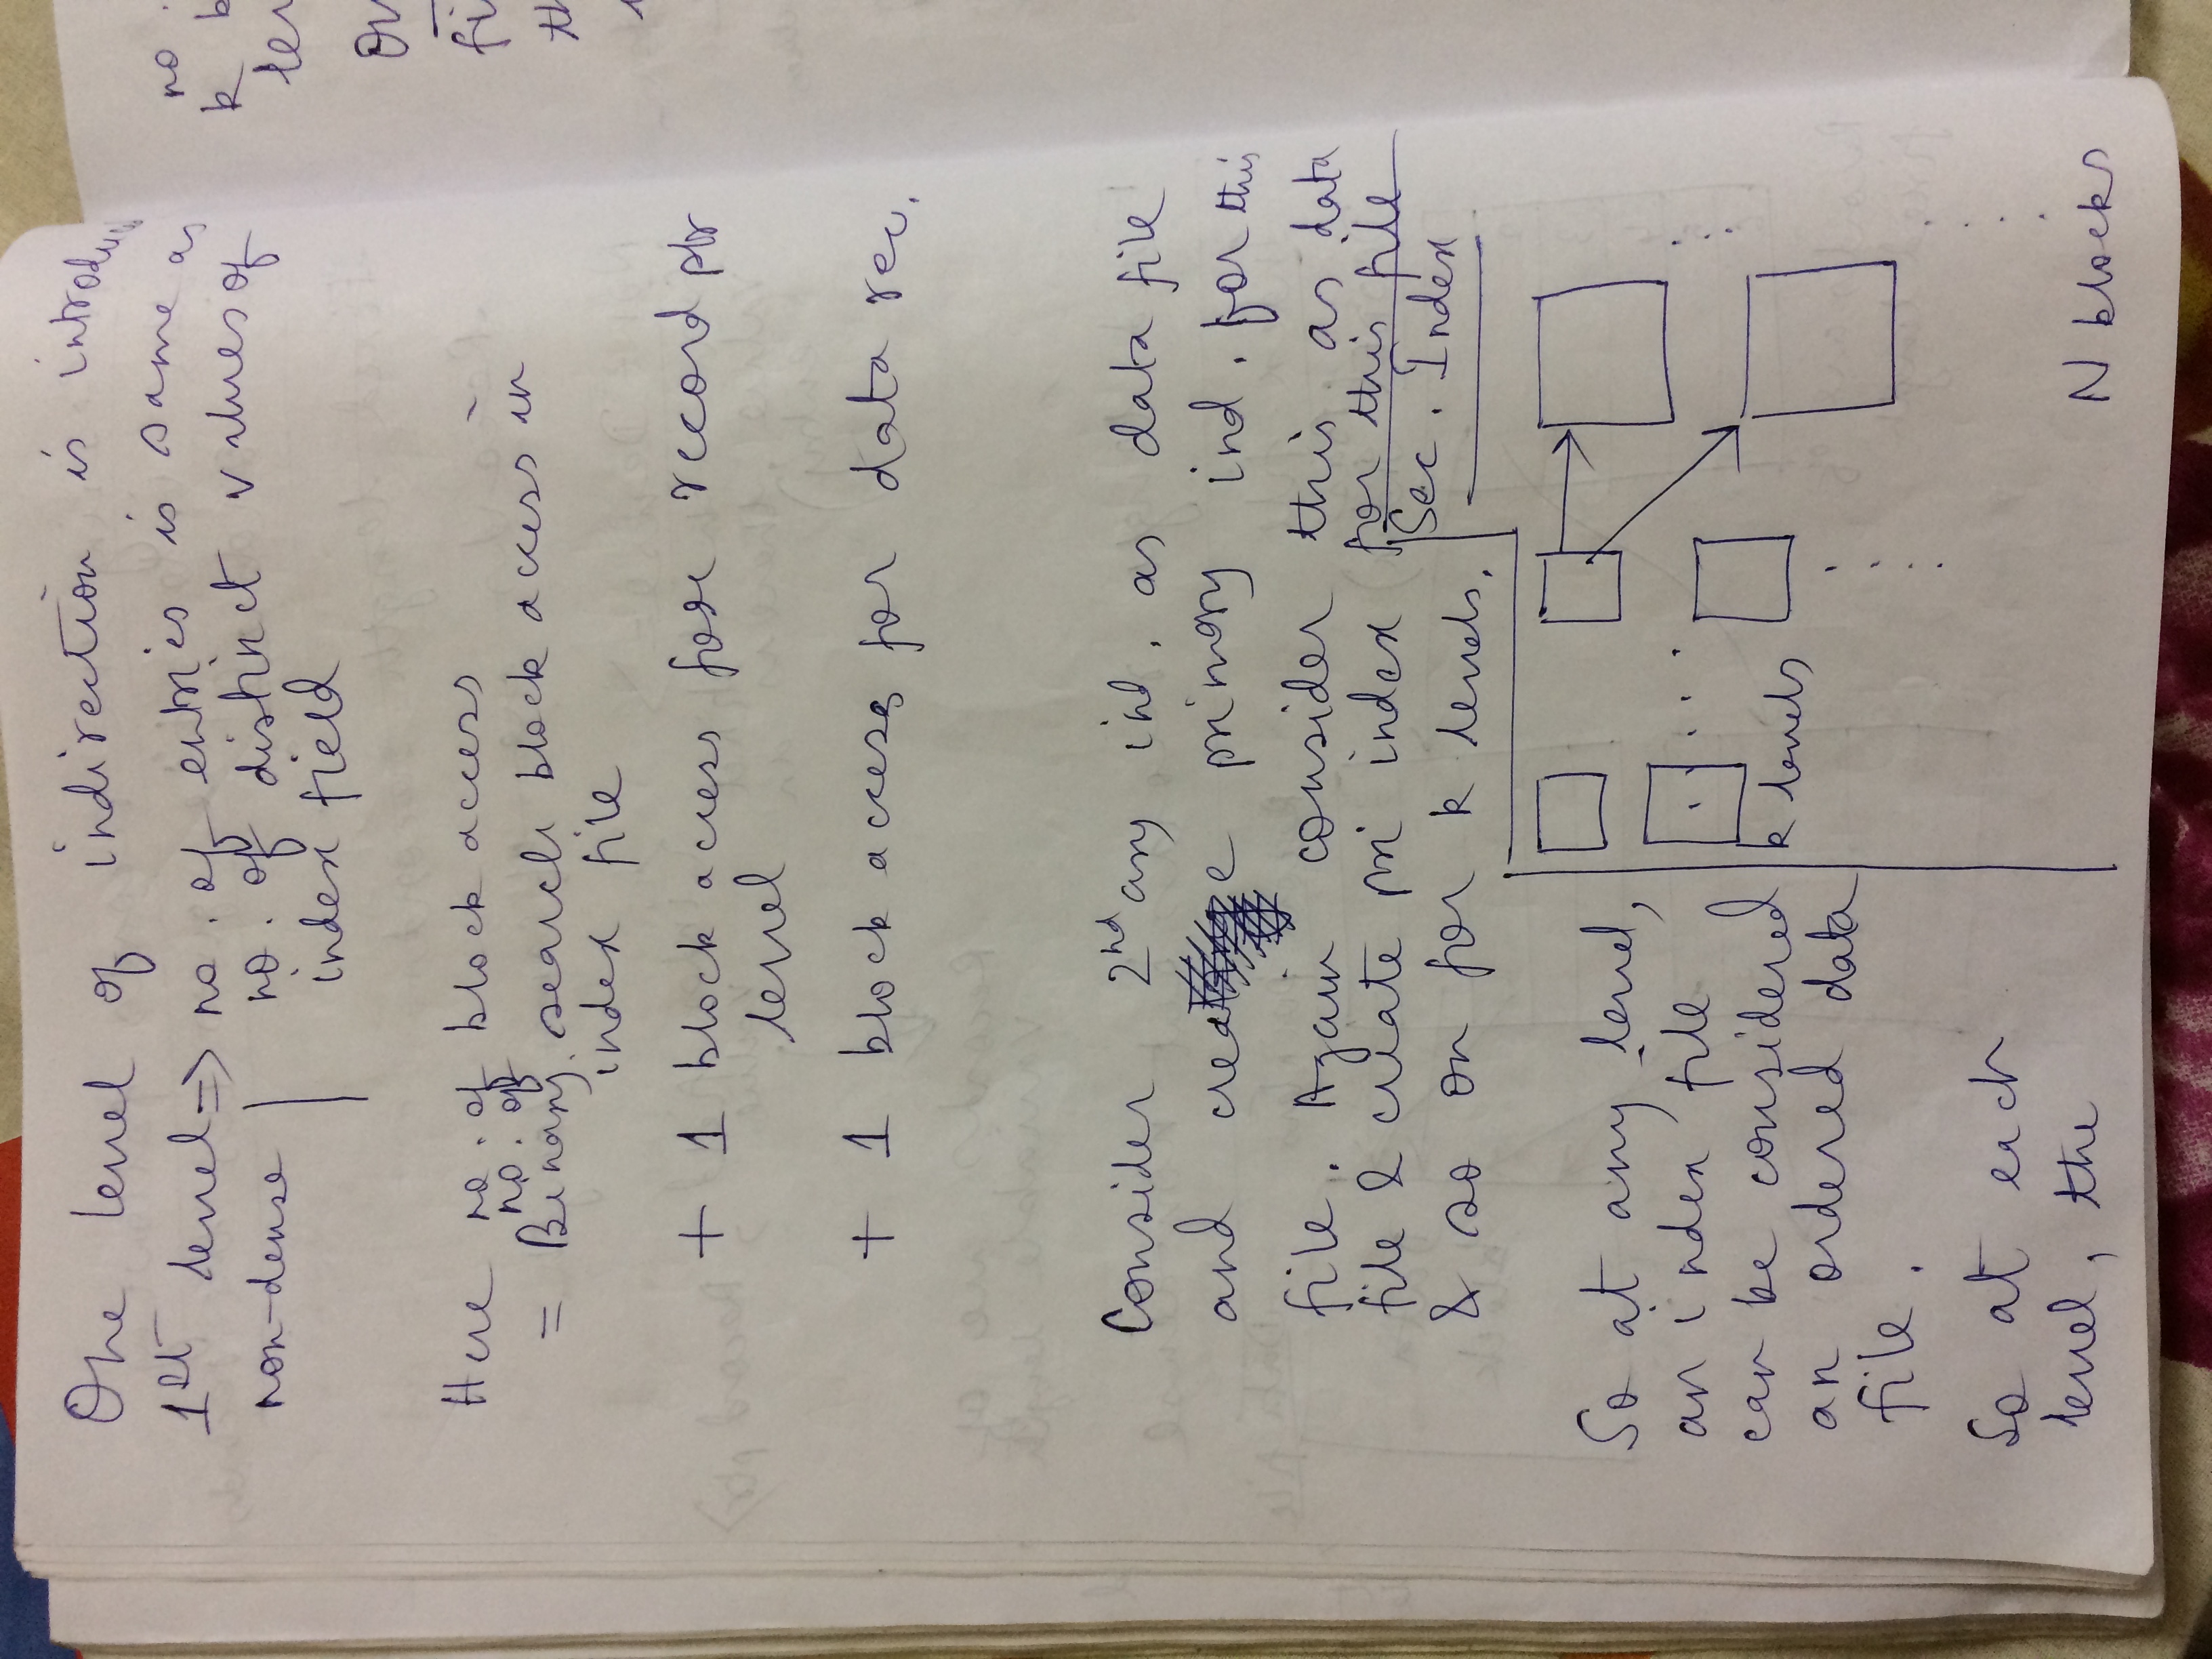 One level of indirection is introdu
1st level => no. of entries is same as
non-dense | no. of distinct values of
index field
Here no. of block access
no. of
= Binary search block access in
index file
+ 1 block access for record ptr
level
+ 1 block access for data rec.
Consider 2nd ary ind. as data file
and create primary ind. for this
file. Again consider this as data
file & create pri index for this file
& so on for k levels.
Sec. Index
So at any level,
an index file
can be considered
an ordered data
file.
So at each
level, the
k levels
N blocks
no.
k